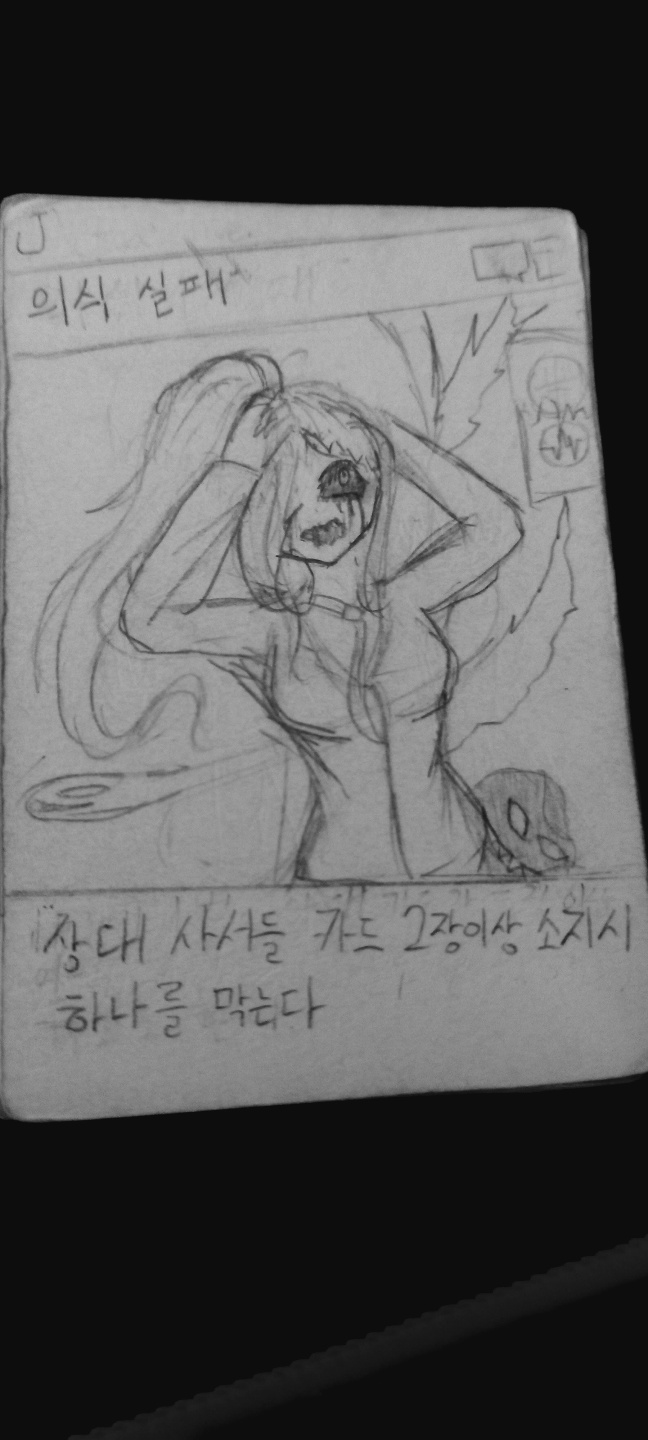 J
의식 실패
상대 사서들 카드 2장이상 소지시
하나를 막는다